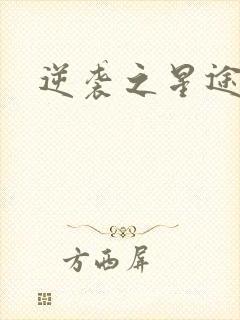 逆袭之星途
方西屏